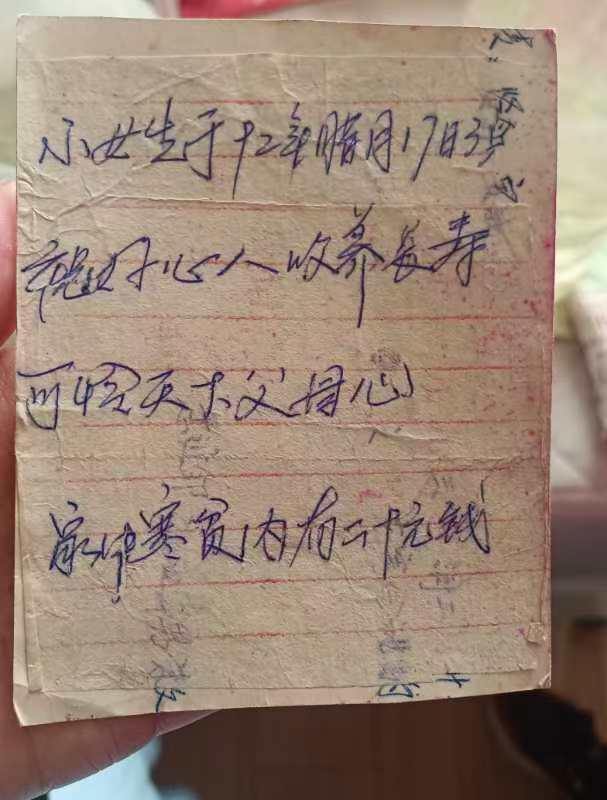 小女生于十二年腊月17日3点
祝好心人收养长寿
可怜天下父母心
家中寒贫内有二十元钱